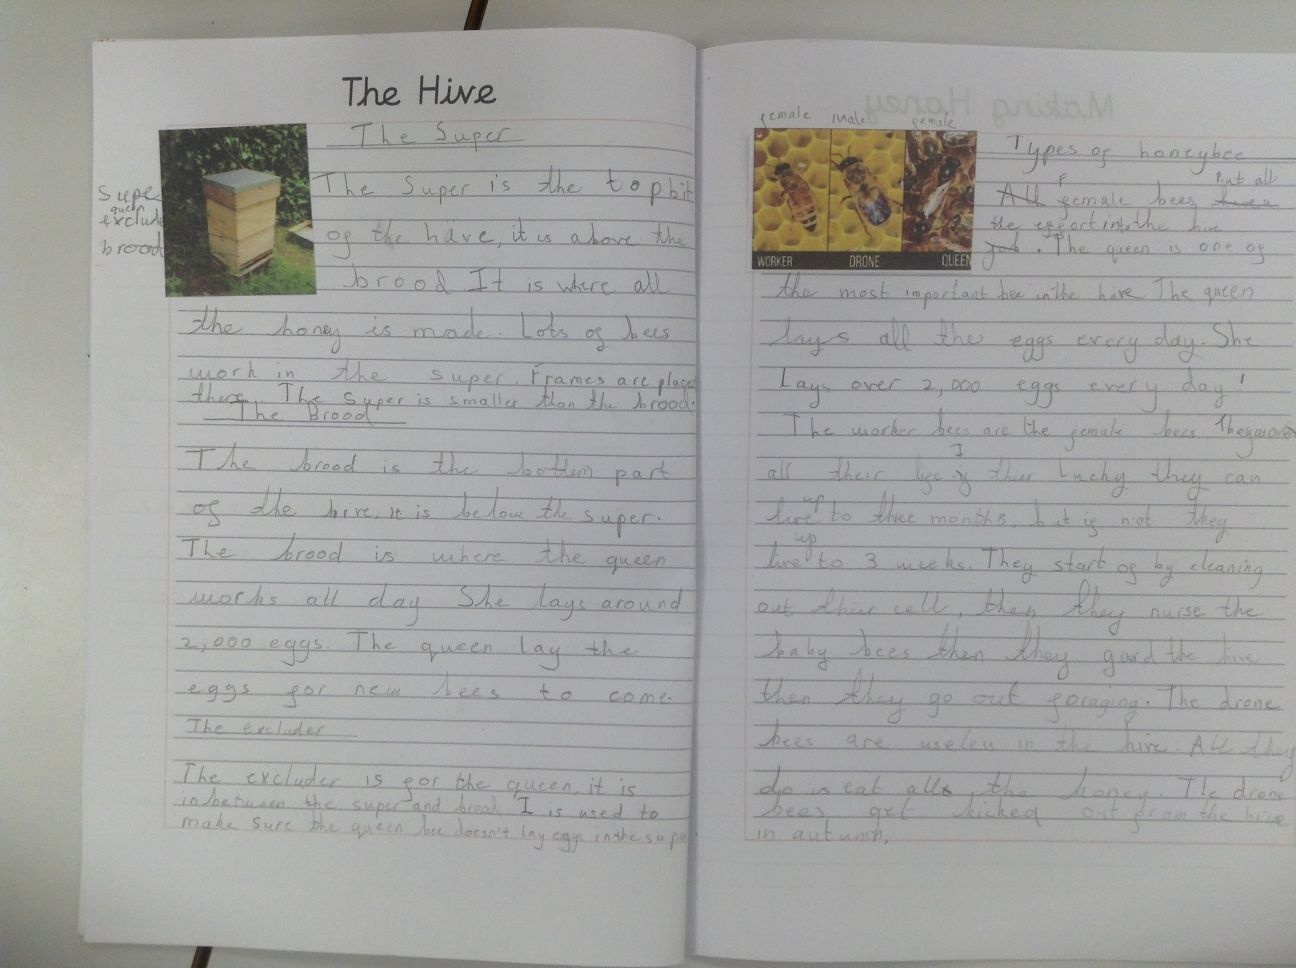 The Hive
The Super
Supe
queen
exclude
brood
The Super is the top bit
of the have, it is above the
brood It is where all
the honey is made. Lots of bees
work in the super. Frames are place
there. The Super is smaller than the brood.
The Brood
The brood is the bottem part
of the hive, it is below the super.
The brood is where the queen
works all day. She lays around
2,000 eggs. The queen lay the
eggs for new bees to come.
The excluder
The excluder is for the queen, it is
in between the super and brood. I is used to
make sure the queen bee doesn't lay eggs in the supe
Making Honey
female male female
WORKER DRONE QUEEN
Types of honeybee
All Female bees Put all
the effort into the hive
. The queen is one of
the most important bee in the have The queen
lays all the eggs every day. She
Lays over 2,000 eggs every day!
The worker bees are the female bees They work
all their life. If thier Luchy they can
live up to three months, but if not they
live up to 3 weeks. They start of by cleaning
out thier cell, then they nurse the
baby bees then they gard the hive
then they go out foraging. The drone
bees are useless in the hive. All they
do is eat all the honey. The drone
bees get kicked out from the hive
in autumn.